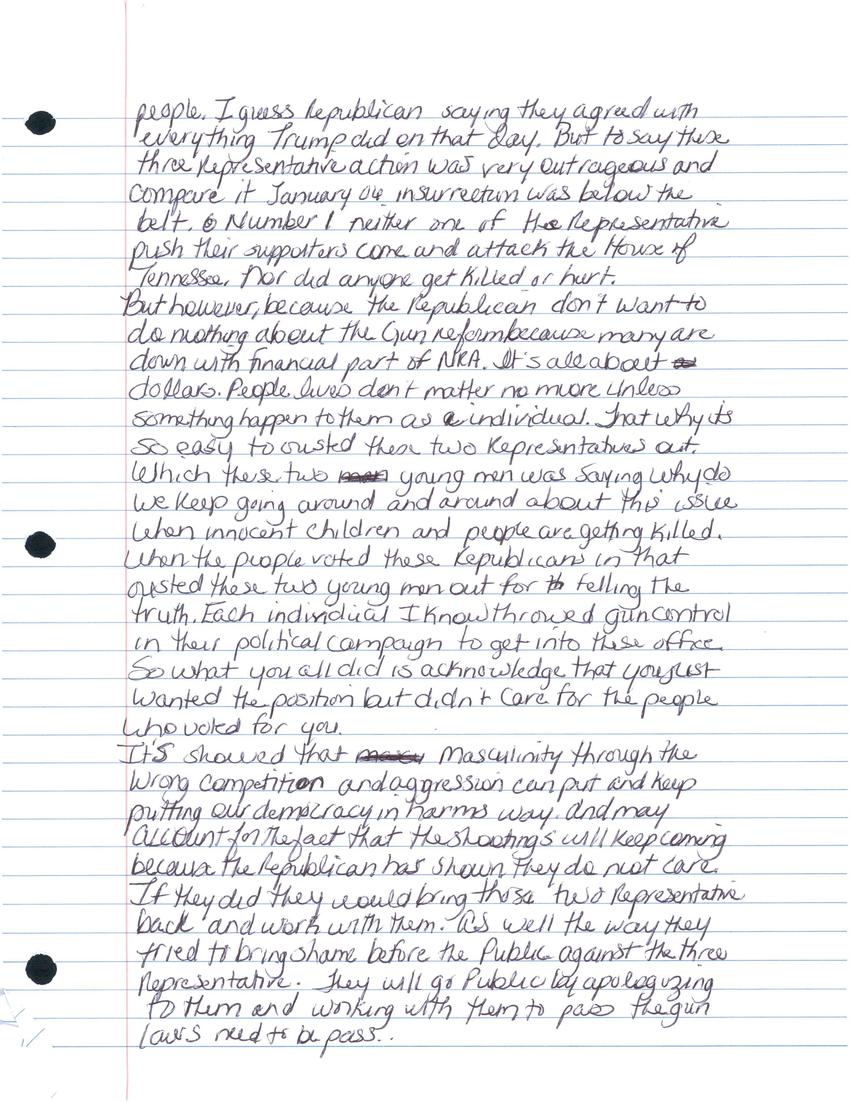 people. I guess Republican saying they agreed with
everything Trump did on that day. But to say these
three Representative action was very outrageous and
compare it January 06 insurrection was below the
belt. Number 1 neither one of the Representative
push their supporters come and attack the House of
Tennessee. Nor did anyone get killed or hurt.
But however, because the Republican don't want to
do nothing about the Gun reform because many are
down with financial part of NRA. It's all about
dollars. People lives don't matter no more unless
something happen to them as a individual. That why its
so easy to ousted these two Representatives out.
Which these two young men was saying why do
we keep going around and around about this issue
when innocent children and people are getting killed.
When the people voted these Republicans in that
ousted these two young men out for telling the
truth. Each individual I know throwed gun control
in their political campaign to get into these office.
So what you all did is acknowledge that you just
wanted the position but didn't care for the people
who voted for you.
It's showed that Masculinity through the
wrong competition and aggression can put and keep
putting our democracy in harms way. And may
account for the fact that the shootings will keep coming
because the Republican has shown they do not care.
If they did they would bring those two Representative
back and work with them. As well the way they
tried to bring shame before the Public against the three
Representative. They will go Public by apologuzing
to them and working with them to pass the gun
laws need to be pass..